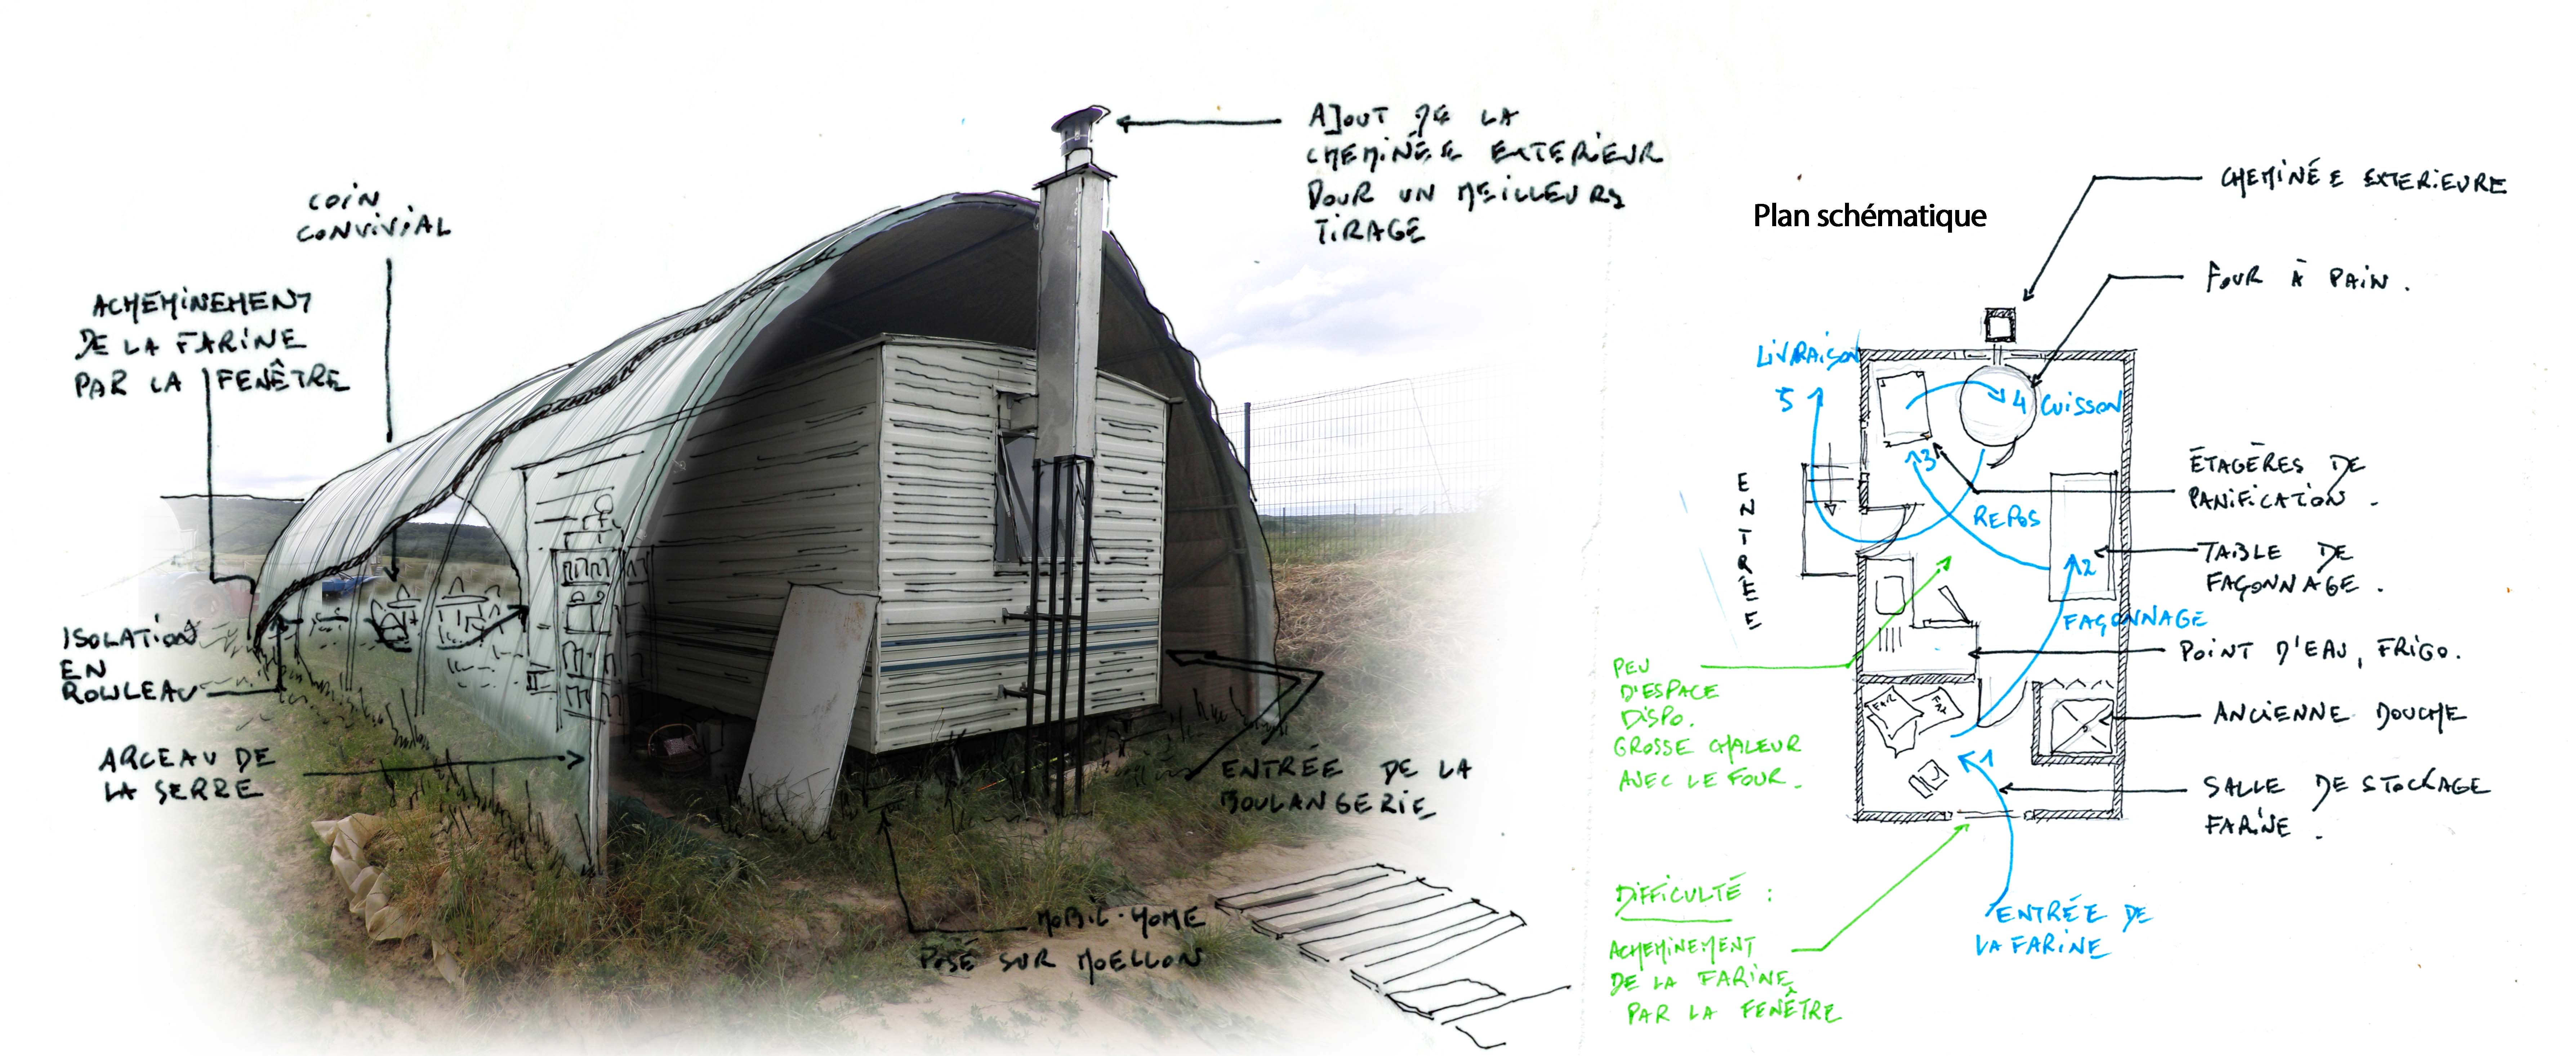 COIN
CONVIVIAL
ACHEMINEMENT
DE LA FARINE
PAR LA FENÊTRE
ISOLATION
EN
ROULEAU
ARCEAU DE
LA SERRE
AJOUT DE LA
CHEMINÉE EXTERIEUR
POUR UN MEILLEURS
TIRAGE
ENTRÉE DE LA
BOULANGERIE
MOBIL-HOME
POSÉ SUR MOELLON
Plan schématique
CHEMINÉE EXTERIEURE
FOUR À PAIN.
LIVRAISON
5
4 CUISSON
3
REPOS
ÉTAGÈRES DE
PANIFICATION.
ENTRÉE
TABLE DE
FAÇONNAGE.
2
FAÇONNAGE
POINT D'EAU, FRIGO.
PEU
D'ESPACE
DISPO.
GROSSE CHALEUR
AVEC LE FOUR.
FAR
ANCIENNE DOUCHE
1
SALLE DE STOCKAGE
FARINE.
DIFFICULTÉ :
ACHEMINEMENT
DE LA FARINE
PAR LA FENÊTRE
ENTRÉE DE
LA FARINE